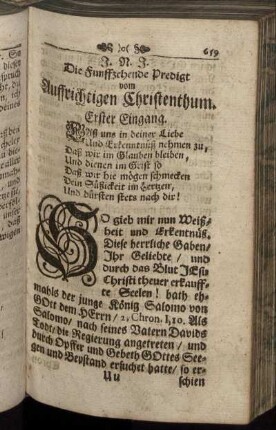 659
J. N. J.
Die Funffzehende Predigt
vom
Auffrichtigen Christenthum.
Erster Eingang.
Laß uns in deiner Liebe
Und Erkenntnüß nehmen zu,
Daß wir im Glauben bleiben,
Und dienen im Geist so
Daß wir hie mögen schmecken
Dein Süßigkeit im Hertzen,
Und dürsten stets nach dir!
SO gieb mir nun Weiß-
heit und Erkentnüß.
Diese herrliche Gaben/
Ihr Geliebte / und
durch das Blut JEsu
Christi theuer erkauff-
te Seelen! hath eh-
mahls der junge König Salomo von
GOtt dem HErrn / 2. Chron. I, 10. Als
Salomo / nach seines Vatern Davids
Todt / die Regierung angetreten / und
durch Opffer und Gebeth GOttes See-
gen und Beystand ersuchet hatte / so er-
Uu
schien